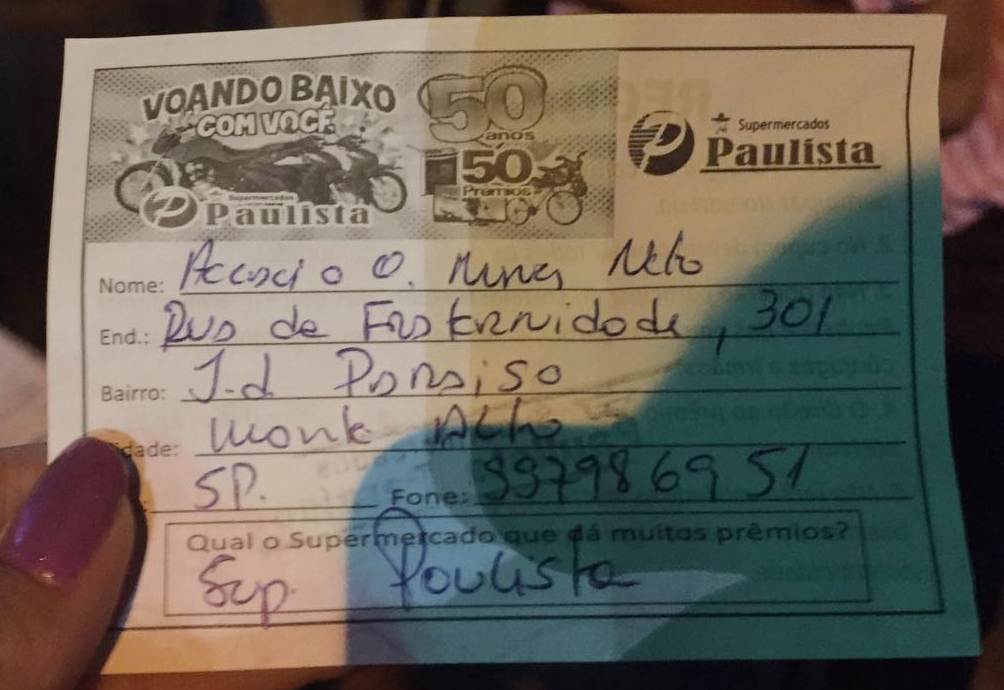 VOANDO BAIXO
COM VOCÊ
Supermercados
Paulista
50
anos
50
Prêmios
Supermercados
Paulista
Nome: Acacio O. Neto
End.: Rua da Fraternidade, 301
Bairro: J-d Paraiso
idade: Monte Alto
SP. Fone: 997986951
Qual o Supermercado que dá muitos prêmios?
Sup. Paulista